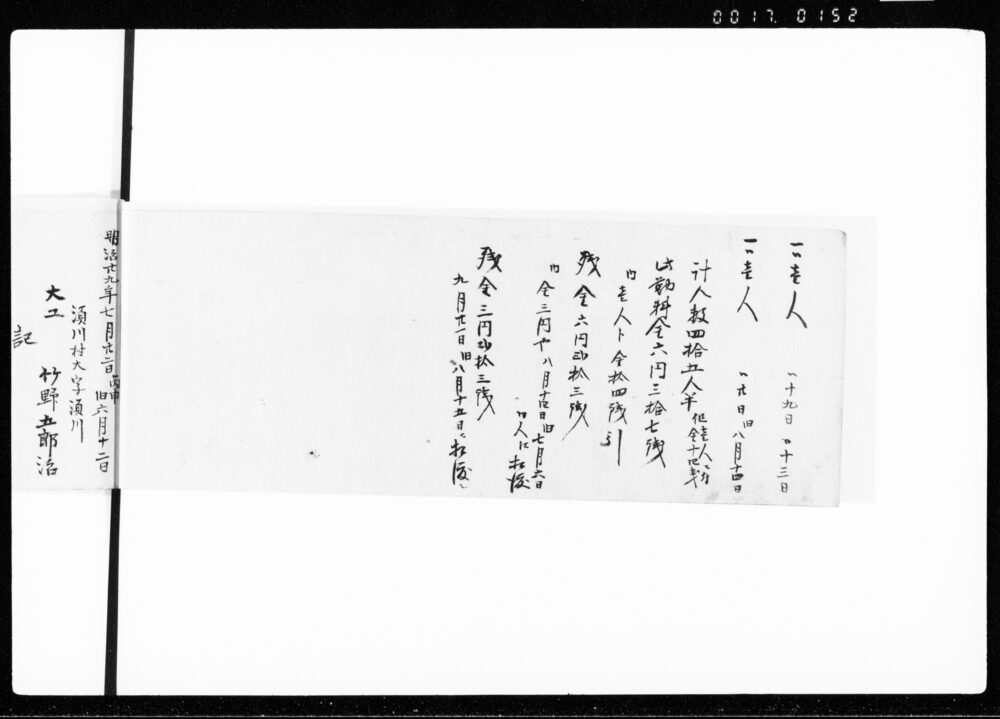 0017.0152
一〃壱人 〃十九日 〃十三日
一〃壱人 〃廿日 旧八月十四日
計人数四拾五人半 但壱人ニ付金十四銭
此勤料金六円三拾七銭
内壱人ト金拾四銭引
残金六円弐拾三銭
内金三円ヤ八月十四日旧七月六日
〃人に相渡
残金三円弐拾三銭
九月廿一日旧八月十五日ニ相渡ス
明治廿九年七月廿二日 丙申 旧六月十二日
須川村大字須川
大工 竹野五郎治
記